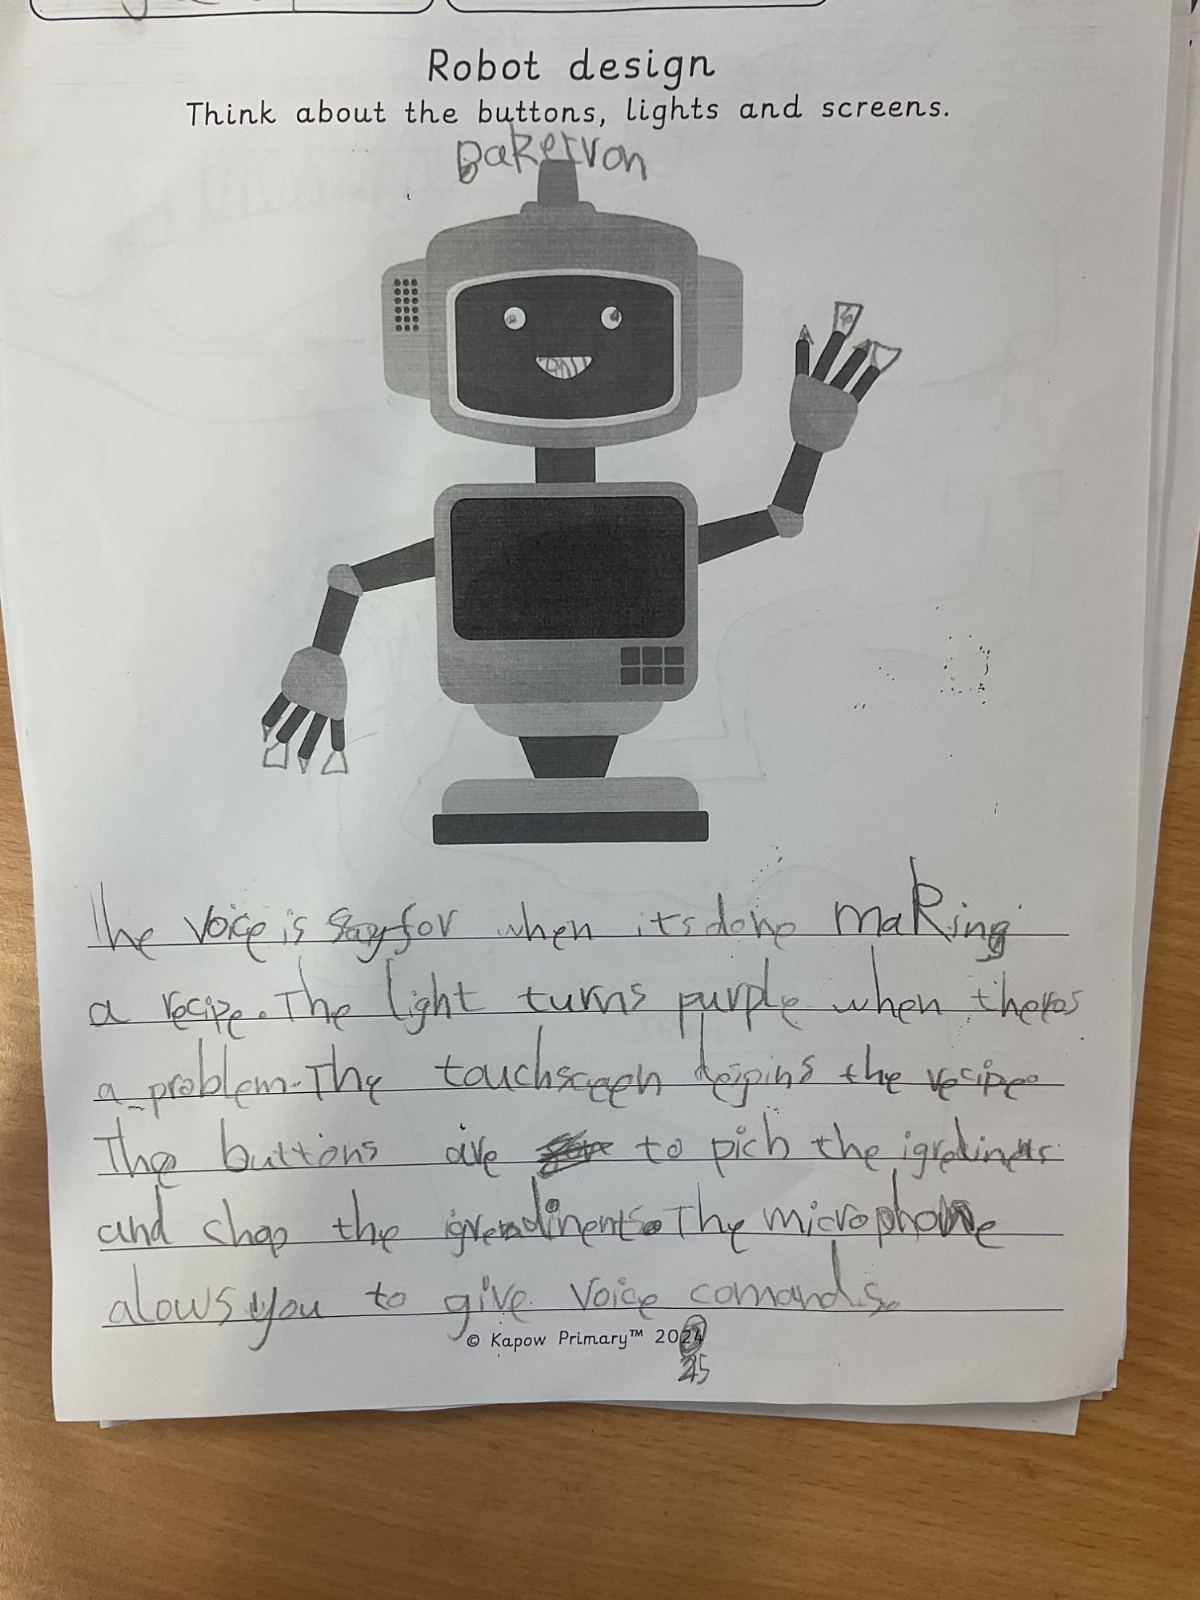 Robot design
Think about the buttons, lights and screens.
Bakervon
The voice is say for when its done making
a recipe. The light turns purple when theres
a problem. The touchsceen the recipe.
The buttons are to pich the
and chop the The microphone
alows you to give voice comands.
© Kapow Primary™ 2024
25